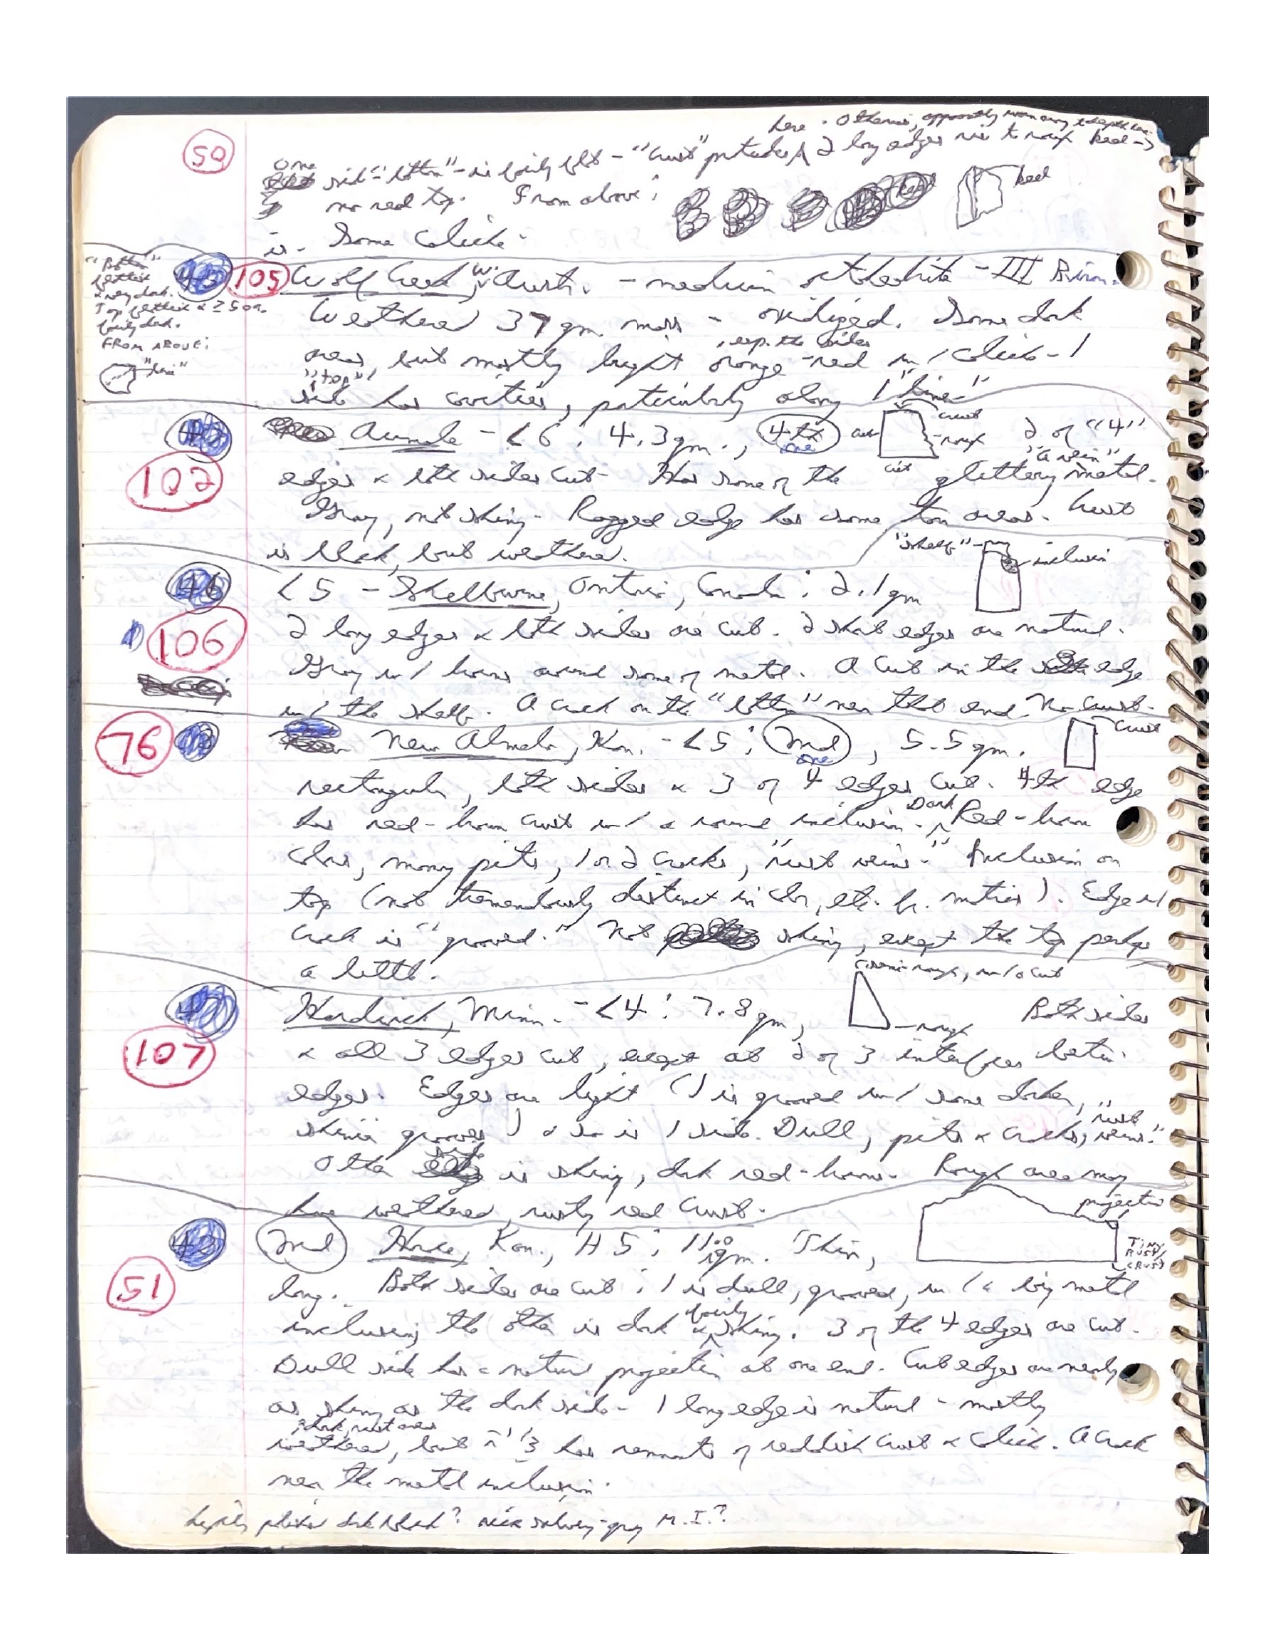 here. Otherwise, apparently worn away to depth here.
50
One side - "bottom" - is fairly flat - "crust" 2 long edges rise to rough keel →
no red top. From above:
keel
is. Some caliche.
"Bottom"
flattish
& very dark.
Top flattish &
fairly dark.
FROM ABOVE:
"line"
105 Wolf Creek, W. Aust. - medium octahedrite - III
Weathered 37 gm. mass - oxidized. Some dark
, esp. the sides
areas, but mostly bright orange-red w/ caliche - 1
"top"
side has cavities, particularly along 1 "line"
102
- L6: 4.3 gm., 4th one
cut crust rough cut
2 of "4"
edges & both sides cut. Has some of the glittery metal.
"a vein"
Gray, not shiny. Ragged edge has some tan areas. Crust
is black, but weathered.
"shelf" inclusion
106
L5 - Shelburne, Ontario, Canada: 2.1 gm
2 long edges & both sides are cut. 2 short edges are natural.
Gray w/ brown around some of metal. A cut in the edge
w/ the shelf. A crack on the "bottom" near that end. No crust.
76
New Almelo, Kan. - L5; 2nd one, 5.5 gm.
crust
rectangular, both sides & 3 of 4 edges cut. 4th edge
has red-brown crust w/ a round inclusion. Dark Red-brown
color, many pits, 1 or 2 cracks, "rust veins." Inclusion on
top (not tremendously distinct in color, etc. fr. matrix). Edge w/
crack is "grooved." Not shiny, except the top perhaps
a little.
semi-rough, w/o cut
107
Hardwick, Minn. - L4: 7.8 gm,
rough
Both sides
& all 3 edges cut, except at 2 of 3 interfaces betw.
edges. Edges are light (1 is grooved w/ some darker,
shinier grooves) & so is 1 side. Dull, pits & cracks, "rust veins."
Other side is shiny, dark red-brown. Rough area may
have weathered, rusty red crust.
projection
TINY RUSTY CRUST
51
2nd Kan., H5: gm. Thin,
long. Both sides are cut: 1 is dull, grooved, w/ a big metal
inclusion, the other is dark & fairly shiny. 3 of the 4 edges are cut.
Dull side has a natural projection at one end. Cut edges are nearly
as shiny as the dark side. 1 long edge is natural - mostly
& dark, rust areas
weathered, but ~1/3 has remnants of reddish crust & caliche. A crack
near the metal inclusion.
M.I.?